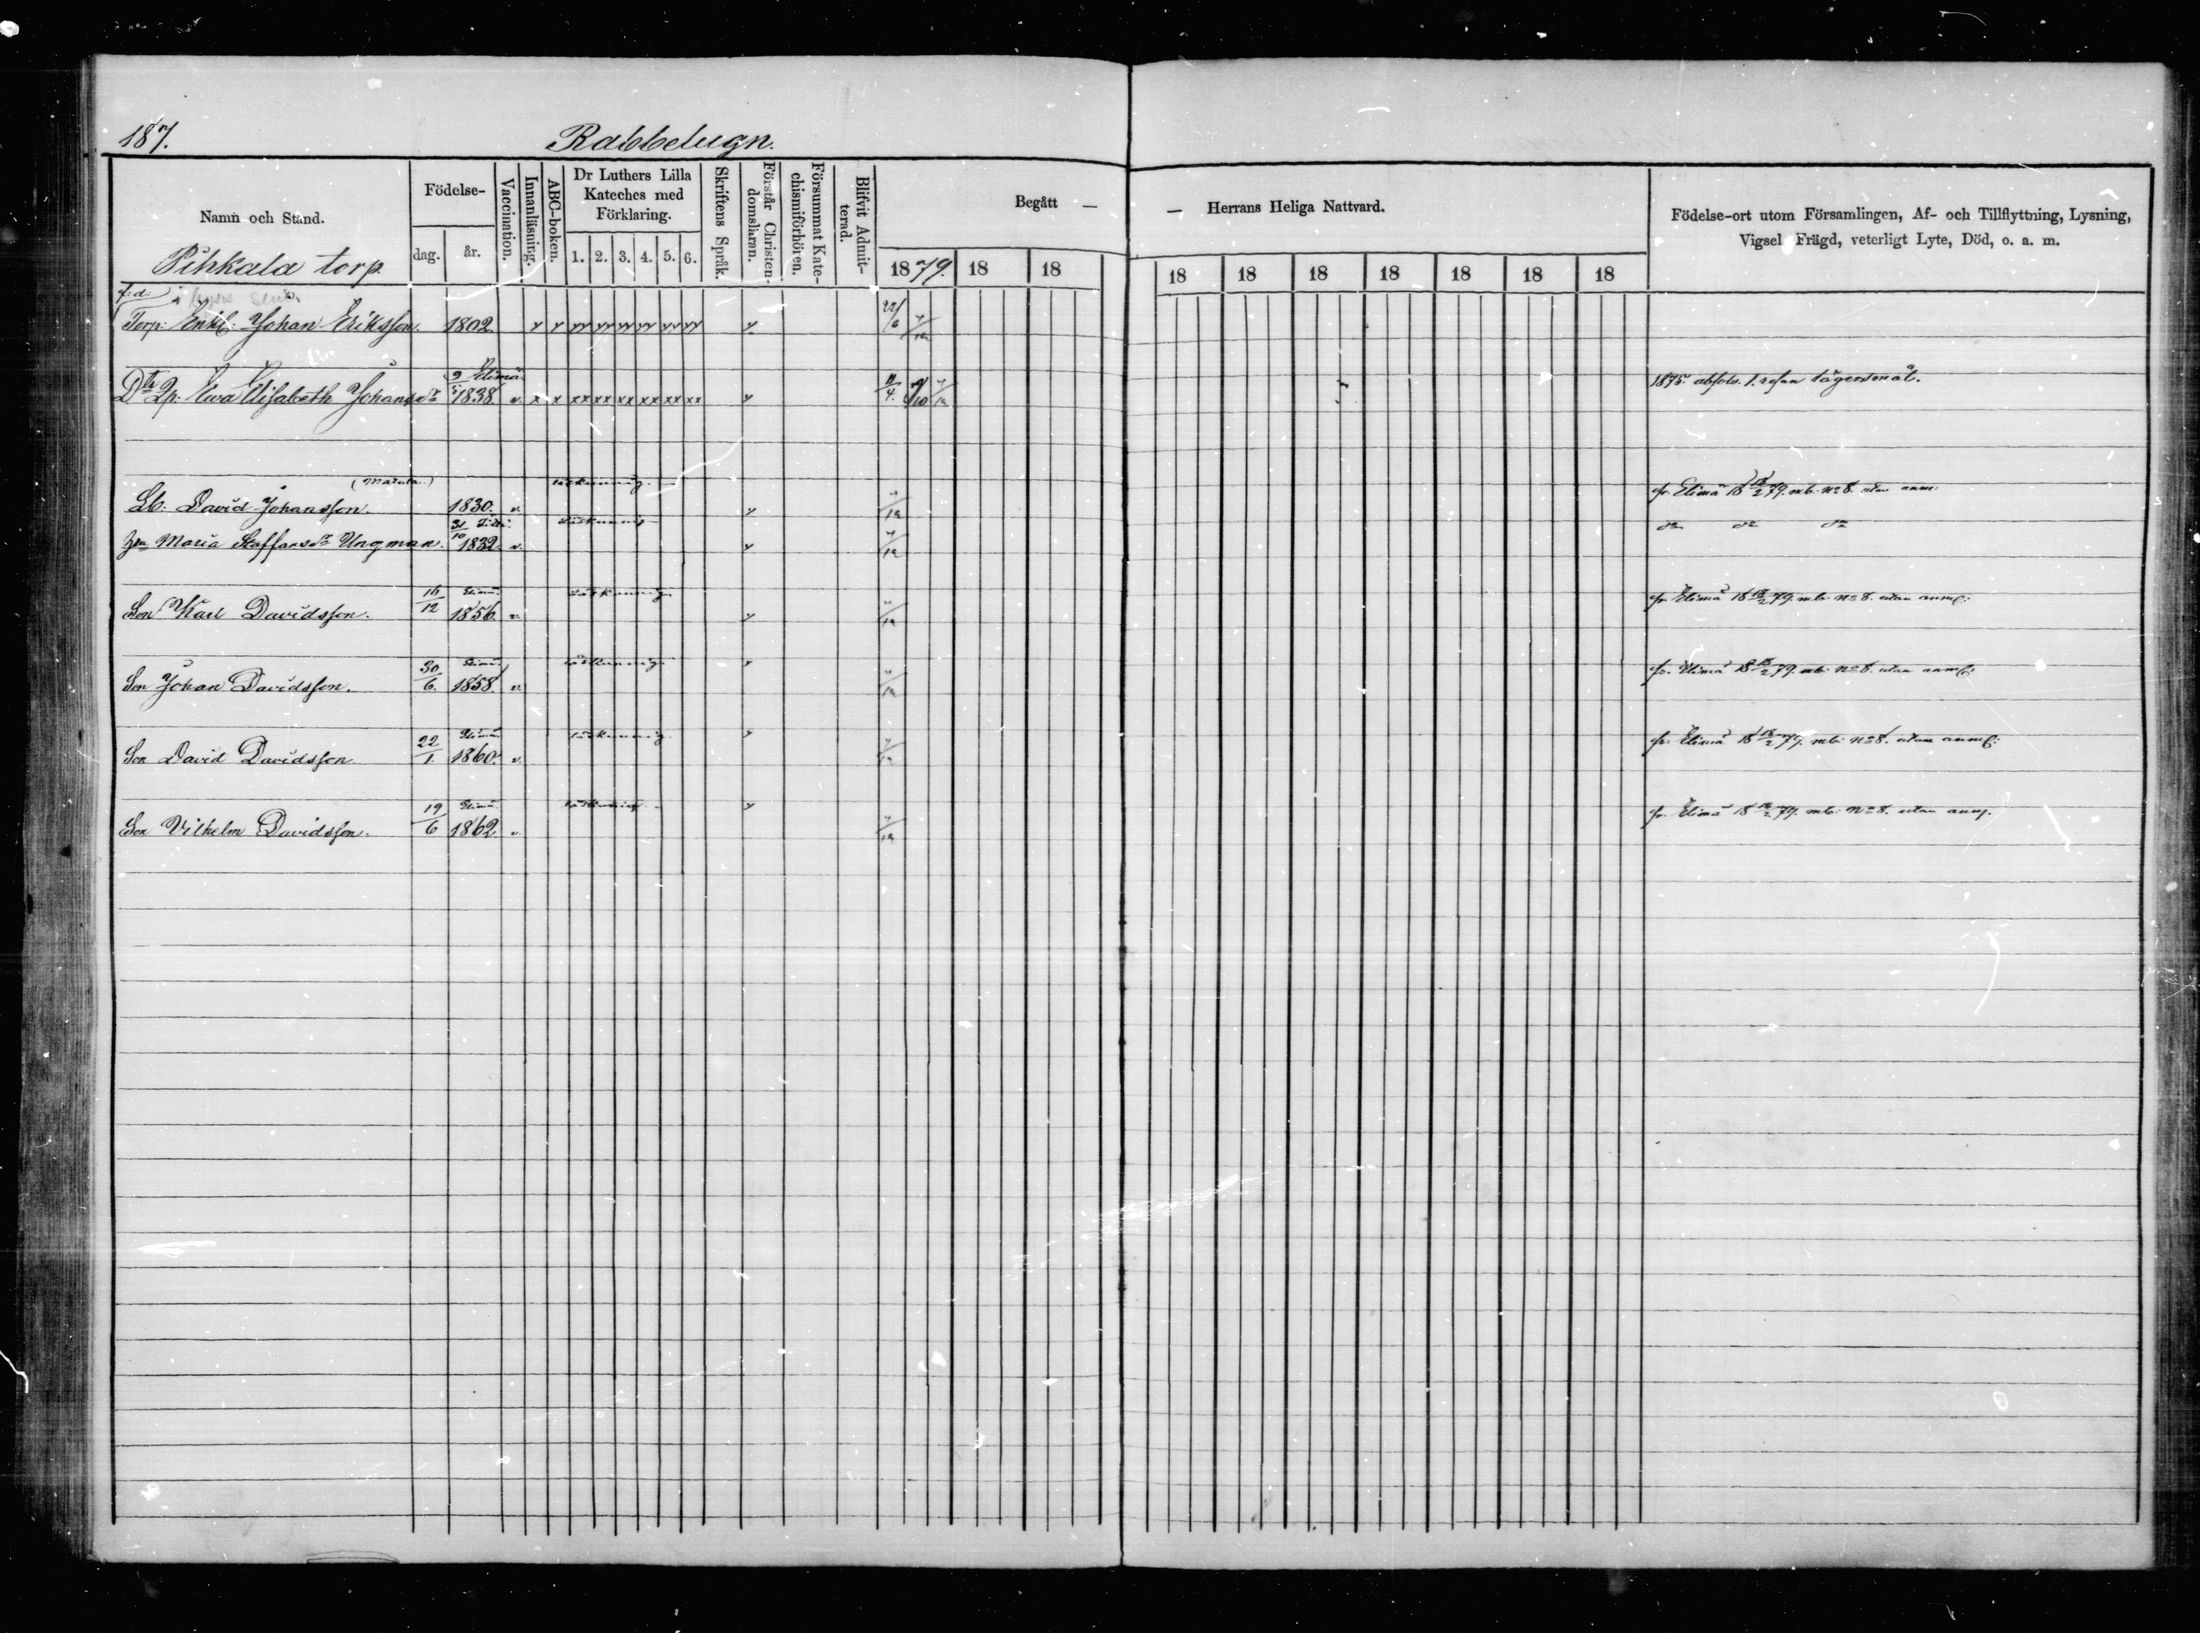 187.
Rabbelugn.
Namn och Stånd.
Födelse-
dag.
år.
Vaccination.
Innanläsning.
ABC-boken.
Dr Luthers Lilla
Kateches med
Förklaring.
1. 2. 3. 4. 5. 6.
Skriftens Språk.
Förstår Christen-
domsläran.
Försummat Kate-
chismiförhören.
Blifvit Admit-
terad.
Begått —
— Herrans Heliga Nattvard.
1879. 18 18
18 18 18 18 18 18 18
Födelse-ort utom Församlingen, Af- och Tillflyttning, Lysning,
Vigsel Frägd, veterligt Lyte, Död, o. a. m.
Pihkala torp
f: d:
Torp: Enkl: Johan Eriksson. 1802. 22/6
Elimä
Dtr Qp: Ewa Elisabeth Johansdr 1838. v. 1875. absolv. 1. resan lägersmål.
Lb: David Johansson. 1830. v. läskunnig fr. Elimä 18 18/2 79. mb. No 8. utan anm:
Maria Staffansdr Ungman. 31/10 1832. v. läskunnig do do do
Son Karl Davidsson. 16/12 Elimä 1856. v. läskunnig fr. Elimä 18 18/2 79. mb. No 8. utan anm:
Son Johan Davidsson. 30/6. Elimä 1858. v. läskunnig fr. Elimä 18 18/2 79. mb. No 8. utan anm:
Son David Davidsson. 22/1. Elimä 1860. v. läskunnig fr. Elimä 18 18/2 79. mb. No 8. utan anm:
Son Vilhelm Davidsson. 19/6 Elimä 1862. v. läskunnig fr. Elimä 18 18/2 79. mb. No 8. utan anm.